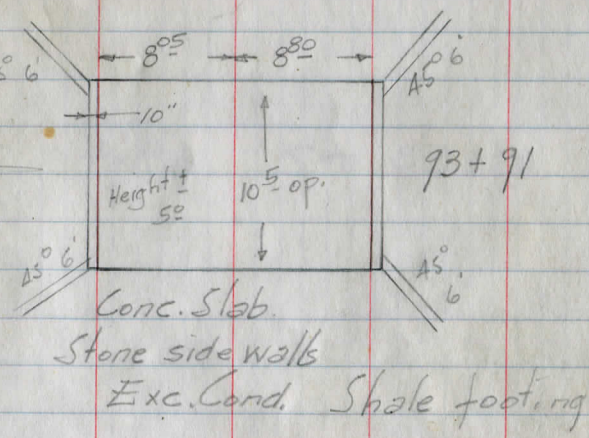 8 05 8 80
45° 6'
6'
10"
93 + 91
Height ±
5 0
10 5 op.
45° 6'
45°
6'
Conc. Slab.
Stone side walls
Exc. Cond. Shale footing